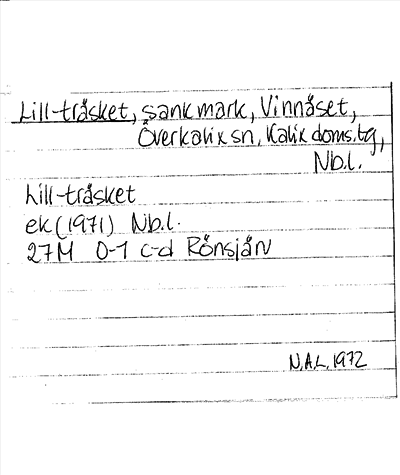 Lill-träsket, sankmark, Vinnäset,
Överkalix sn, Kalix doms.tg,
Nb.l.
Lill-träsket
ek (1971) Nb.l.
27M 0-1 c-d Rönsjärv
N.A.L. 1972